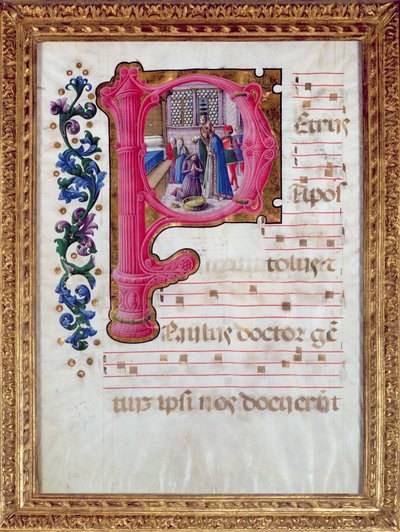 PEtrus
Apos
tolus et
Paulus doctor gē
tiuʒ ipsi nos docuerūt